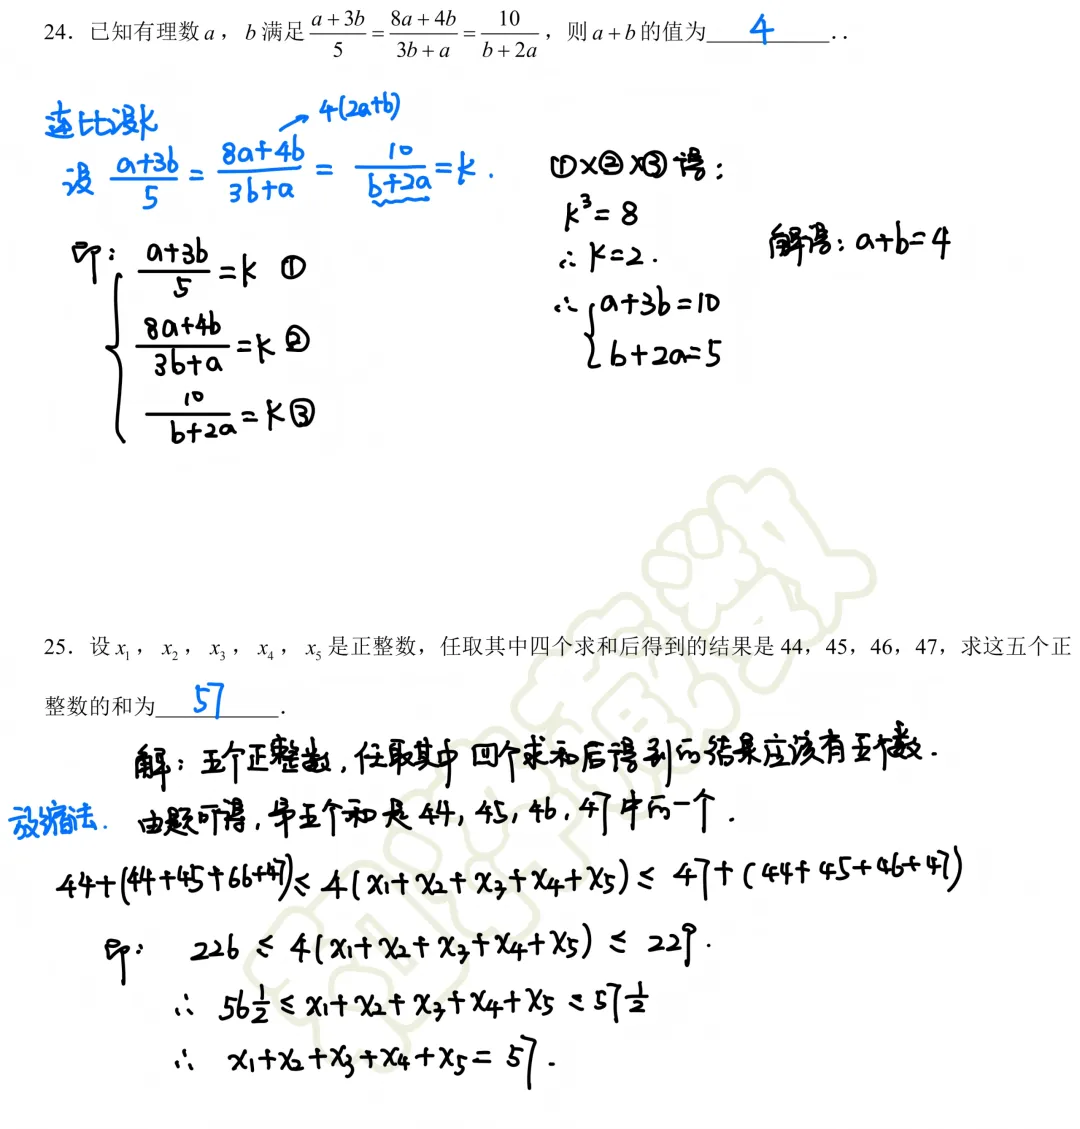 24．已知有理数 a，b 满足 (a+3b)/5 = (8a+4b)/(3b+a) = 10/(b+2a)，则 a+b 的值为____4____．．
连比设k
4(2a+b)
设 (a+3b)/5 = (8a+4b)/(3b+a) = 10/(b+2a) = k．
即：
(a+3b)/5 = k ①
(8a+4b)/(3b+a) = k ②
10/(b+2a) = k ③
①×②×③得：
k³=8
∴ k=2．
∴ { a+3b=10
b+2a=5
解得：a+b=4
25．设 x₁，x₂，x₃，x₄，x₅ 是正整数，任取其中四个求和后得到的结果是 44，45，46，47，求这五个正
整数的和为____57____．
解：五个正整数，任取其中四个求和后得到的结果应该有五个数．
放缩法．
由题可得，第五个和是44，45，46，47中的一个．
44+(44+45+66+47)≤4(x₁+x₂+x₃+x₄+x₅)≤47+(44+45+46+47)
即： 226≤4(x₁+x₂+x₃+x₄+x₅)≤229．
∴ 56½≤x₁+x₂+x₃+x₄+x₅≤57½
∴ x₁+x₂+x₃+x₄+x₅=57．